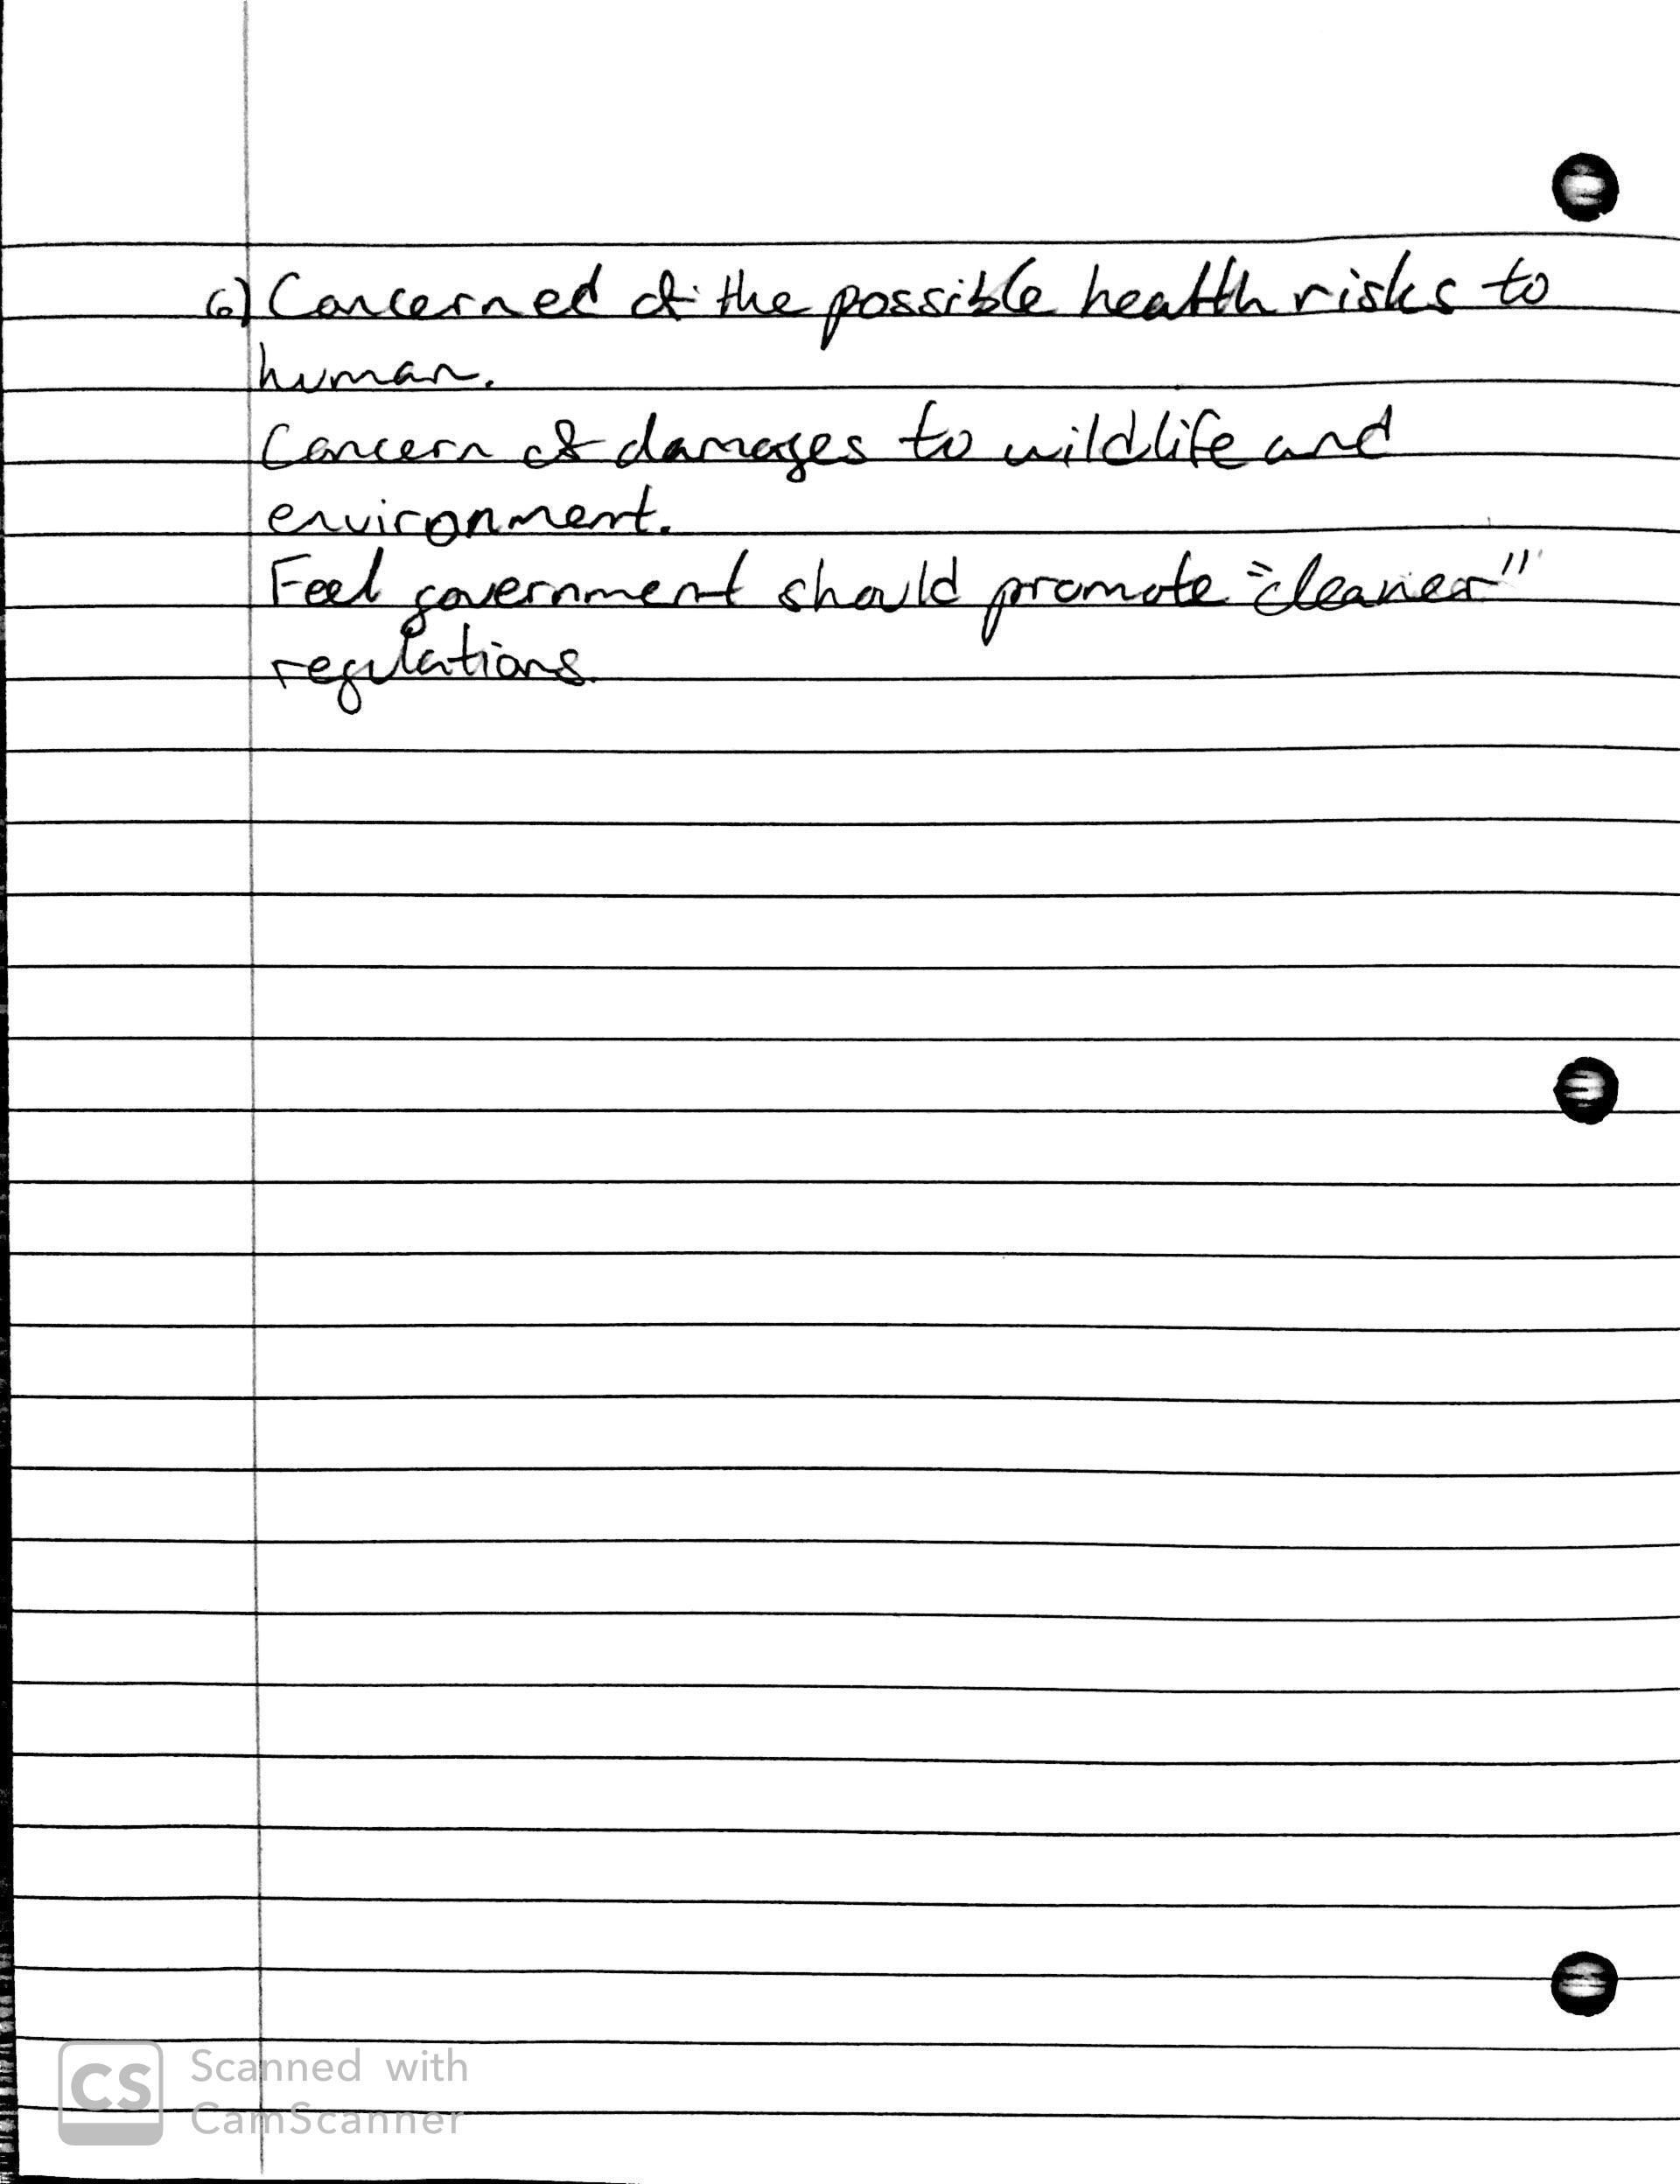 6) Concerned of the possible health risks to
human.
Concern of damages to wildlife and
environment.
Feel government should promote "cleaner"
regulations.
CS Scanned with
CamScanner